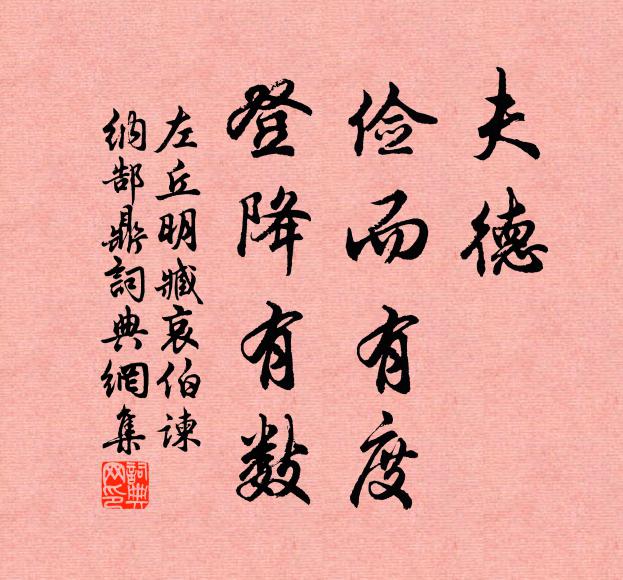 夫德
俭而有度
登降有数
左丘明臧哀伯谏
纳郜鼎詞典網集
詞典网印